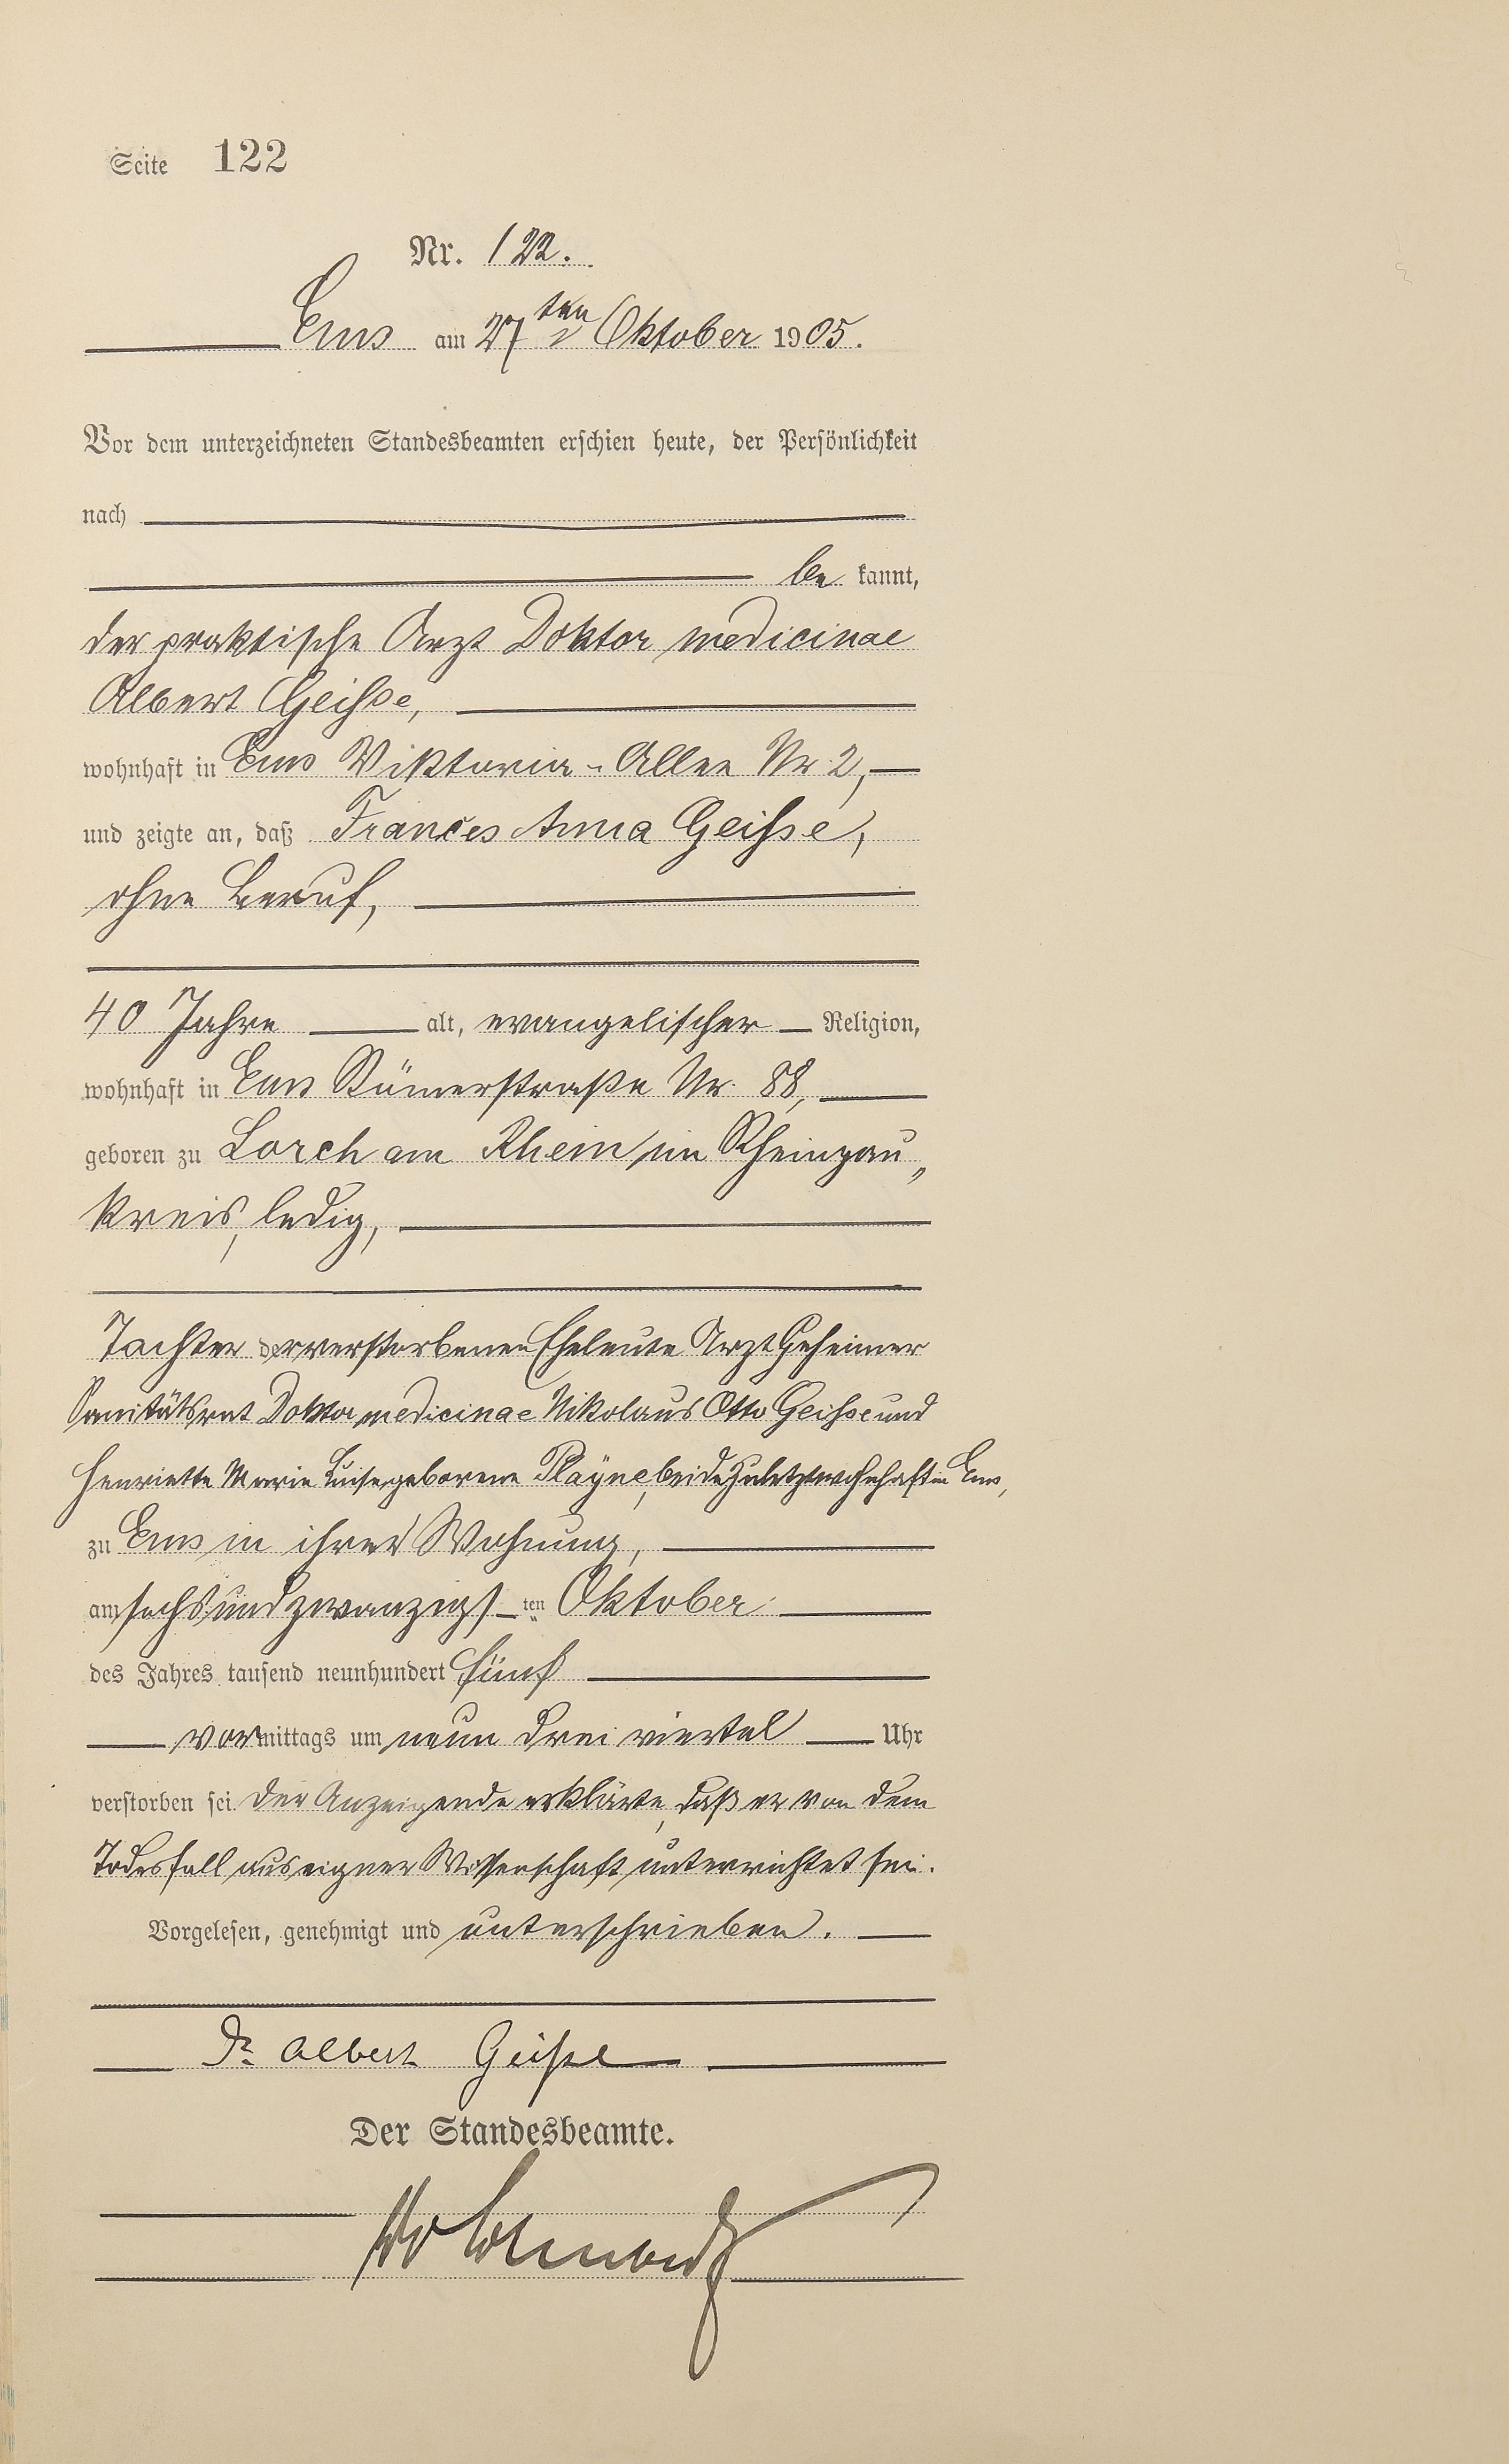 Seite 122
Nr. 122.
Ems am 27ten Oktober 1905.
Vor dem unterzeichneten Standesbeamten erschien heute, der Persönlichkeit
nach
be kannt,
der praktische Arzt Doktor medicinae
Albert Geisse,
wohnhaft in Ems Viktoria-Allee Nr 2,
und zeigte an, daß Frances Anna Geisse,
ohne Beruf,
40 Jahre alt, evangelischer Religion,
wohnhaft in Ems Römerstraße Nr. 88,
geboren zu Lorch am Rhein im Rheingau„
kreis, ledig,
Tochter der verstorbenen Eheleute Arzt Geheimer
Sanitätsrat Doktor medicinae Nikolaus Otto Geisse und
Henriette Marie Luise, geborene Playne, beide zuletzt wohnhaft in Ems,
zu Ems in ihrer Wohnung,
am sechsundzwanzigsten Oktober
des Jahres tausend neunhundert fünf
vormittags um neun drei viertel Uhr
verstorben sei. Der Anzeigende erklärte, daß er von dem
Todesfall aus eigner Wissenschaft unterrichtet sei.
Vorgelesen, genehmigt und unterschrieben.
Dr. Albert Geiße
Der Standesbeamte.